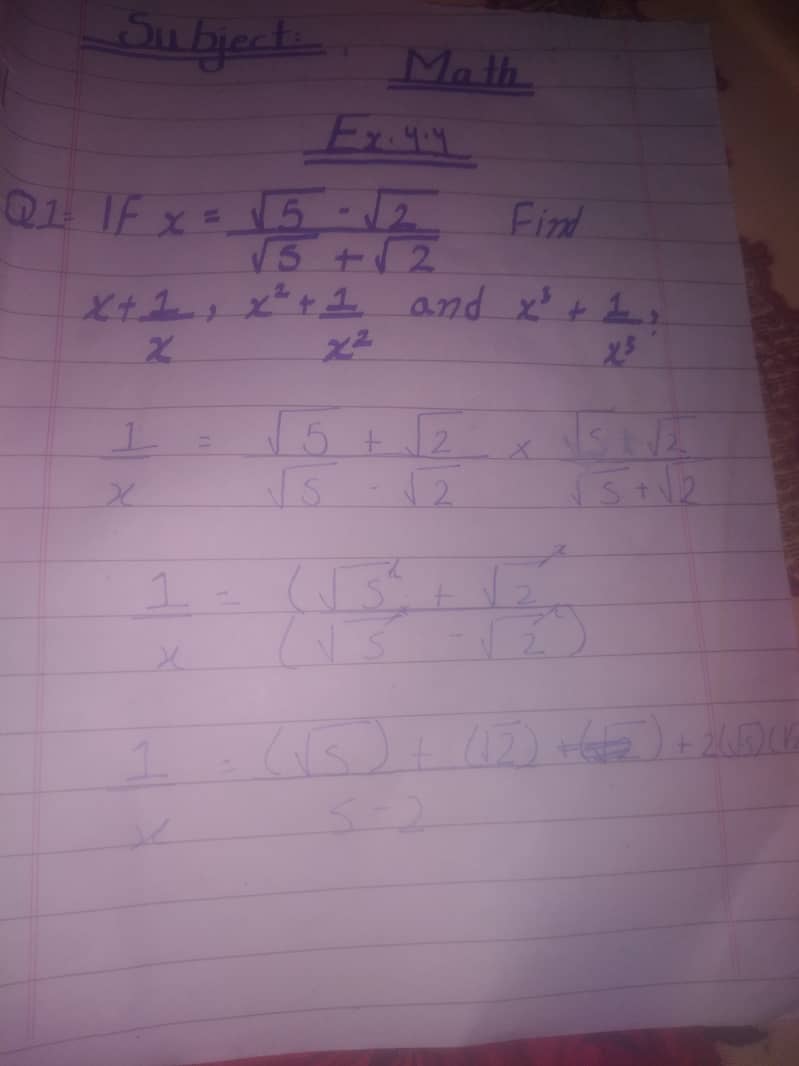 Subject:
Math
Ex.4.4
Q1= If x = √5 - √2 / √5 + √2 Find
x + 1/x, x² + 1/x² and x³ + 1/x³?
1/x = √5 + √2 / √5 - √2 × √5 + √2 / √5 + √2
1/x = (√5² + √2² / (√5² - √2²)
1/x = (√5) + (√2) + 2(√5)(√ / 5-2